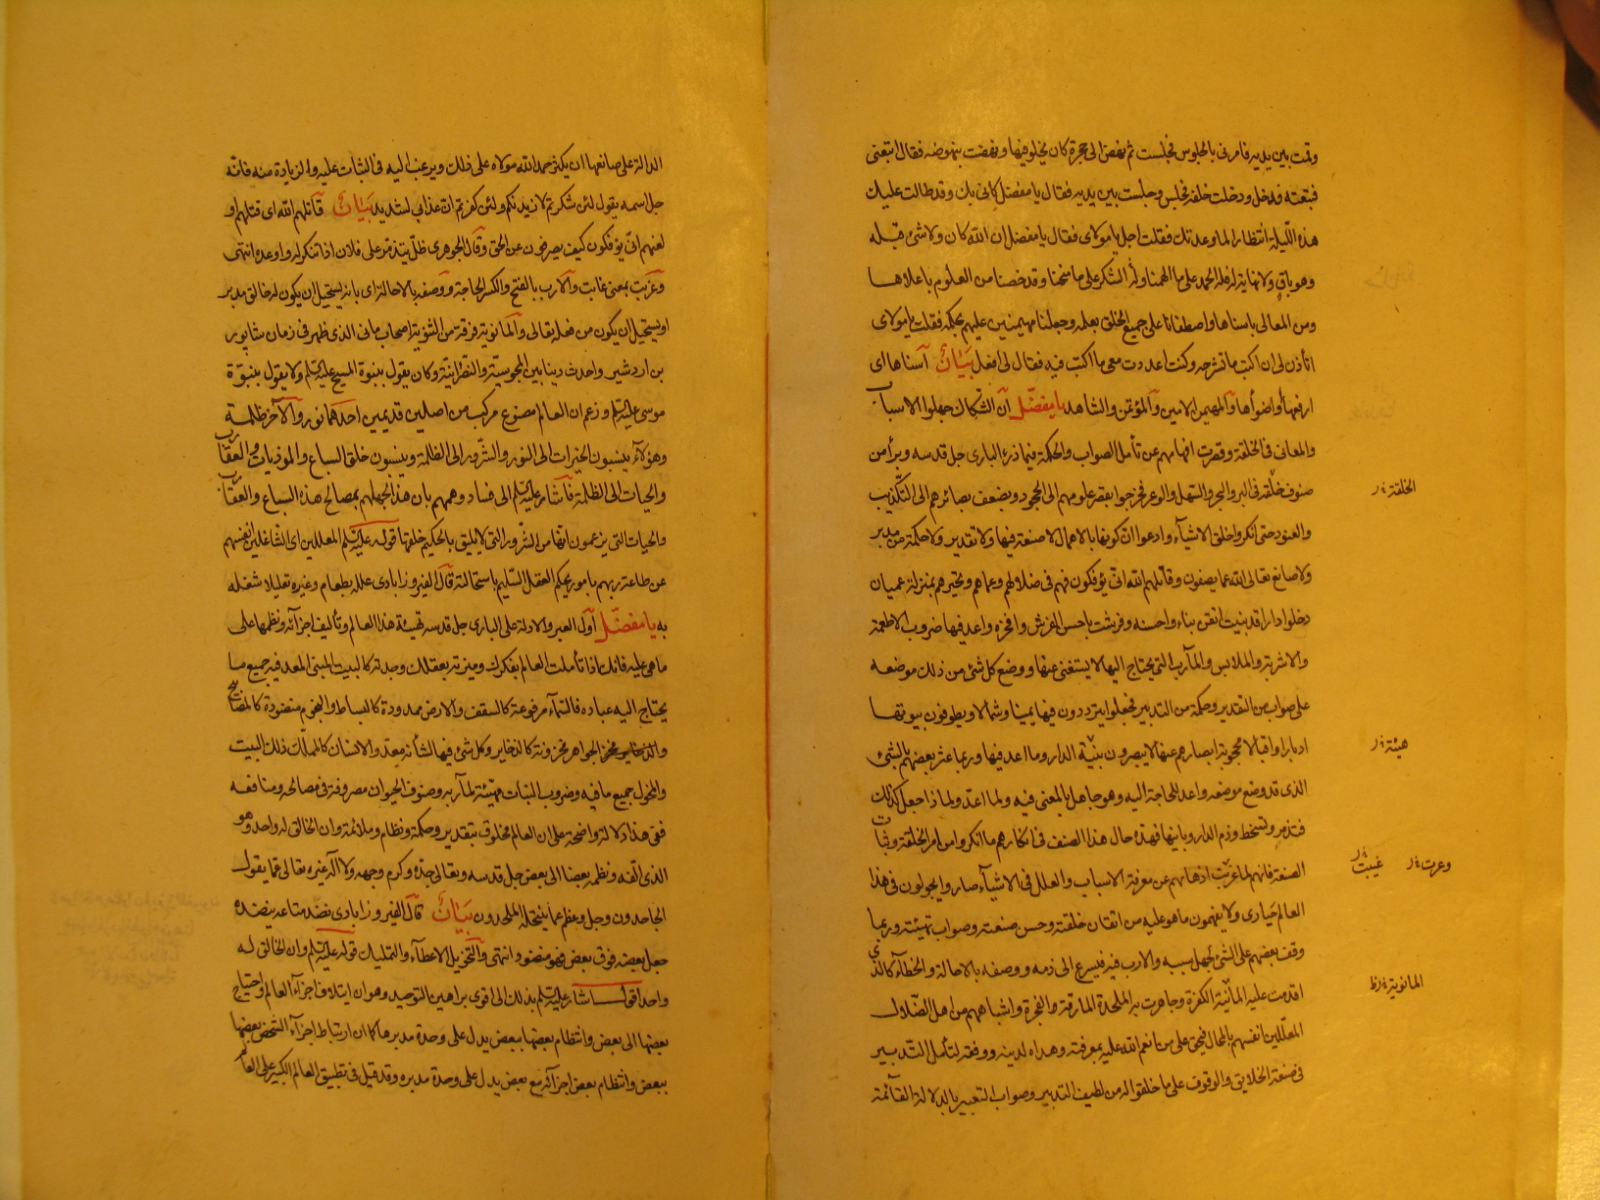 وقمت بين يديه فامرنى بالجلوس فجلست ثم نهض الى حجرة كان يخلو فيها ونهضت بنهوضه فقال اتبعنى
فتبعته فدخل ودخلت خلفه فجلس وجلست بين يديه فقال يا مفضل كانى بك وقد طالت عليك
هذه الليلة انتظارا لما وعدتك فقلت اجل يا مولاى فقال يا مفضل ان الله كان ولا شئ قبله
وهو باق ولا نهاية له فله الحمد على ما الهمنا وله الشكر على ما منحنا وقد خصنا من العلوم باعلاها
ومن المعالى باسناها واصطفانا على جميع الخلق بعلمه وجعلنا مهيمنين عليهم بحكمه فقلت يا مولاى
اتأذن لى ان اكتب ما تشرحه وكنت اعددت معى ما اكتب فيه فقال لى افعل بيان اسناها اى
ارفعها أو اضوأها والمهيمن الامين والمؤتمن والشاهد يا مفضل ان الشكاك جهلوا الاسباب
والمعانى فى الخلقة وقصرت افهامهم عن تأمل الصواب والحكمة فيما ذرء البارى جل قدسه وبرأ من
صنوف خلقه فى البر والبحر والسهل والوعر فخرجوا بقصر علومهم الى الجحود وبضعف بصائرهم الى التكذيب
والعنود حتى انكروا خلق الاشياء وادعوا ان كونها بالاهمال لا صنعة فيها ولا تقدير ولا حكمة من مدبر
ولا صانع تعالى الله عما يصفون وقاتلهم الله انى يؤفكون فهم فى ضلالهم وعماهم وتحيرهم بمنزلة عميان
دخلوا دارا قد بنيت اتقن بناء واحسنه وفرشت باحسن الفرش وافخره واعد فيها ضروب الاطعمة
والاشربة والملابس والمآرب التى يحتاج اليها لا يستغنى عنها ووضع كل شئ من ذلك موضعه
على صواب من التقدير وحكمة من التدبير فجعلوا يترددون فيها يمينا وشمالا ويطوفون بيوتها
ادبارا واقبالا محجوبة ابصارهم عنها لا يبصرون بنية الدار وما اعد فيها وربما عثر بعضهم بالشئ
الذى قد وضع موضعه واعد للحاجة اليه وهو جاهل بالمعنى فيه ولما اعد ولماذا جعل كذلك
فتذمر وتسخط وذم الدار وبانيها فهذه حال هذا الصنف فى انكارهم ما انكروا من امر الخلقة وثبات
الصنعة فانهم لما عزبت اذهانهم عن معرفة الاسباب والعلل فى الاشياء صاروا يجولون فى هذا
العالم حيارى ولا يفهمون ما هو عليه من اتقان خلقته وحسن صنعته وصواب تهيئته وربما
وقف بعضهم على الشئ يجهل سببه والارب فيه فيسرع الى ذمه ووصفه بالاحالة والخطاء كالذى
اقدمت عليه المانية الكفرة وجاهرت به الملحدة المارقة الفجرة واشباههم من اهل الضلال
المعللين انفسهم بالمحال فيحق على من انعم الله عليه بمعرفته وهداه لدينه ووفقه لتأمل التدبير
فى صنعة الخلايق والوقوف على ما خلقوا له من لطيف التدبير وصواب التعبير بالدلالة القائمة
الخلقة
هيئة
غيبت
وعرت
المانوية
الدالة على صانعها ان يكثر حمد الله مولاه على ذلك ويرغب اليه فى الثبات عليه والزيادة منه فانه
جل اسمه يقول لئن شكرتم لازيدنكم ولئن كفرتم ان عذابى لشديد بيان قاتلهم الله اى قتلهم او
لعنهم انى يؤفكون كيف يصرفون عن الحق وقال الجوهرى ظل يتذمر على فلان اذا تنكر له واوعده انتهى
وعزبت بمعنى غابت والارب بالفتح والكسر الحاجة ووصفه بالاحالة اى بانه يستحيل ان يكون له خالق مدبر
او يستحيل ان يكون من فعله تعالى والمانوية فرقة من الثنوية اصحاب مانى الذى ظهر فى زمان شابور
بن اردشير واحدث دينا بين المجوسية والنصرانية وكان يقول بنبوة المسيح عليه السلم ولا يقول بنبوة
موسى عليه السلم وزعم ان العالم مصنوع مركب من اصلين قديمين احدهما نور والآخر ظلمة
وهؤلاء ينسبون الخيرات الى النور والشرور الى الظلمة وينسبون خلق السباع والموذيات والعقارب
والحيات الى الظلمة فاشار عليه السلم الى فساد وهمهم بان هذا لجهلهم بمصالح هذه السباع والعقارب
والحيات التى يزعمون انها من الشرور التى لا يليق بالحكيم خلقها قوله عليه السلم المعللين اى الشاغلين انفسهم
عن طاعة ربهم بامور يحكم العقل السليم باستحالته قال الفيروزابادى علله بطعام وغيره تعليلا شغله
به يا مفضل اول العبر والادلة على البارى جل قدسه تهيئة هذا العالم وتأليف اجزآئه ونظمها على
ما هى عليه فانك اذا تأملت العالم بفكرك وميزته بعقلك وجدته كالبيت المبنى المعد فيه جميع ما
يحتاج اليه عباده فالسماء مرفوعة كالسقف والارض ممدودة كالبساط والنجوم منضودة كالمصابيح
والجواهر مخزونة كالذخاير وكل شئ فيها لشأنه معد والانسان كالمملك ذلك البيت
والمخول جميع ما فيه وضروب النبات مهيئة لمآربه وصنوف الحيوان مصروفة فى مصالحه ومنافعه
ففى هذا دلالة واضحة على ان العالم مخلوق بتقدير وحكمة ونظام وملائمة وان الخالق له واحد وهو
الذى الفه ونظمه بعضا الى بعض جل قدسه وتعالى جده وكرم وجهه ولا اله غيره تعالى عما يقول
الجاحدون وجل وعظم عما ينتحله الملحدون بيان قال الفيروزابادى نضد متاعه ينضده
جعل بعضه فوق بعض فهو منضود انتهى والتخويل الاعطاء والتمليك قوله عليه السلم وان الخالق له
واحد اقول اشار عليه السلم بذلك الى اقوى براهين التوحيد وهو ان ايتلاف اجزاء العالم واحتياج
بعضها الى بعض وانتظام بعضها ببعض يدل على وحدة مدبرها كما ان ارتباط اجزاء الشخص بعضها
ببعض وانتظام بعض اجزائه مع بعض يدل على وحدة مدبره وقد قيل فى تطبيق العالم الكبير على العالم